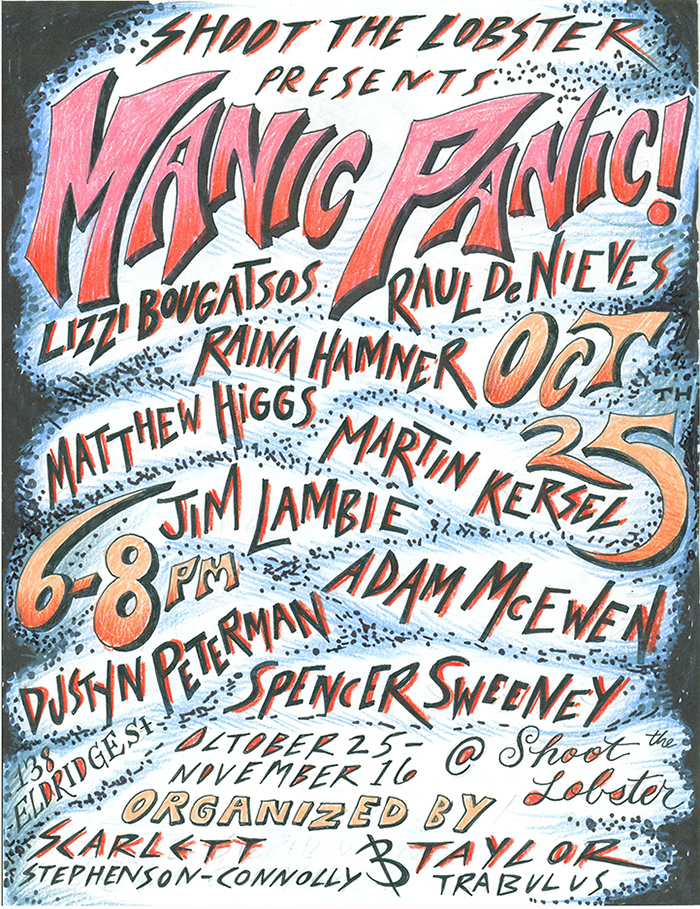 SHOOT THE LOBSTER
PRESENTS
MANIC PANIC!
LIZZI BOUGATSOS
RAUL De NIEVES
RAINA HAMNER
OCT
25TH
MATTHEW HiGGS
MARTIN KERSEL
JIM LAMBIE
6-8 PM
ADAM McEWEN
DUSTYN PETERMAN
SPENCER SWEENEY
138
ELDRIDGE St
OCTOBER 25-
NOVEMBER 16
@ Shoot the
Lobster
ORGANIZED BY
SCARLETT
STEPHENSON-CONNOLLY
& TAYLOR
TRABULUS